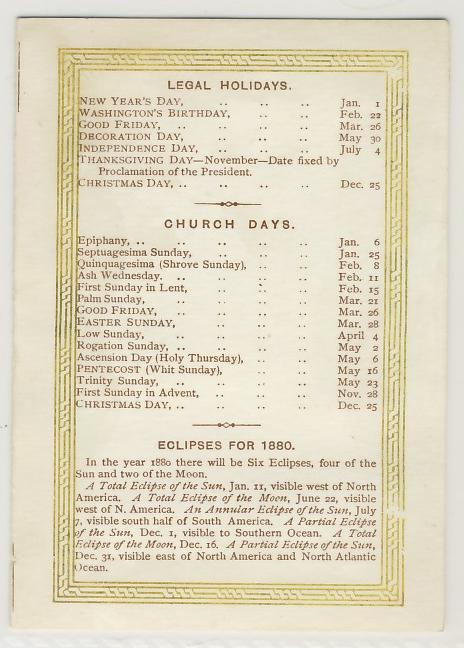 LEGAL HOLIDAYS.
NEW YEAR'S DAY, .. .. .. Jan. 1
WASHINGTON'S BIRTHDAY, .. .. Feb. 22
GOOD FRIDAY, .. .. .. Mar. 26
DECORATION DAY, .. .. .. May 30
INDEPENDENCE DAY, .. .. .. July 4
THANKSGIVING DAY—November—Date fixed by
Proclamation of the President.
CHRISTMAS DAY, .. .. .. .. Dec. 25
CHURCH DAYS.
Epiphany, .. .. .. .. .. Jan. 6
Septuagesima Sunday, .. .. .. Jan. 25
Quinquagesima (Shrove Sunday), .. .. Feb. 8
Ash Wednesday. .. .. .. .. Feb. 11
First Sunday in Lent, .. .. .. Feb. 15
Palm Sunday, .. .. .. .. Mar. 21
GOOD FRIDAY, .. .. .. .. Mar. 26
EASTER SUNDAY, .. .. .. Mar. 28
Low Sunday, .. .. .. .. April 4
Rogation Sunday, .. .. .. .. May 2
Ascension Day (Holy Thursday), .. .. May 6
PENTECOST (Whit Sunday), .. .. May 16
Trinity Sunday, .. .. .. .. May 23
First Sunday in Advent, .. .. .. Nov. 28
CHRISTMAS DAY, .. .. .. .. Dec. 25
ECLIPSES FOR 1880.
In the year 1880 there will be Six Eclipses, four of the
Sun and two of the Moon.
A Total Eclipse of the Sun, Jan. 11, visible west of North
America. A Total Eclipse of the Moon, June 22, visible
west of N. America. An Annular Eclipse of the Sun, July
7, visible south half of South America. A Partial Eclipse
of the Sun, Dec. 1, visible to Southern Ocean. A Total
Eclipse of the Moon, Dec. 16. A Partial Eclipse of the Sun,
Dec. 31, visible east of North America and North Atlantic
Ocean.